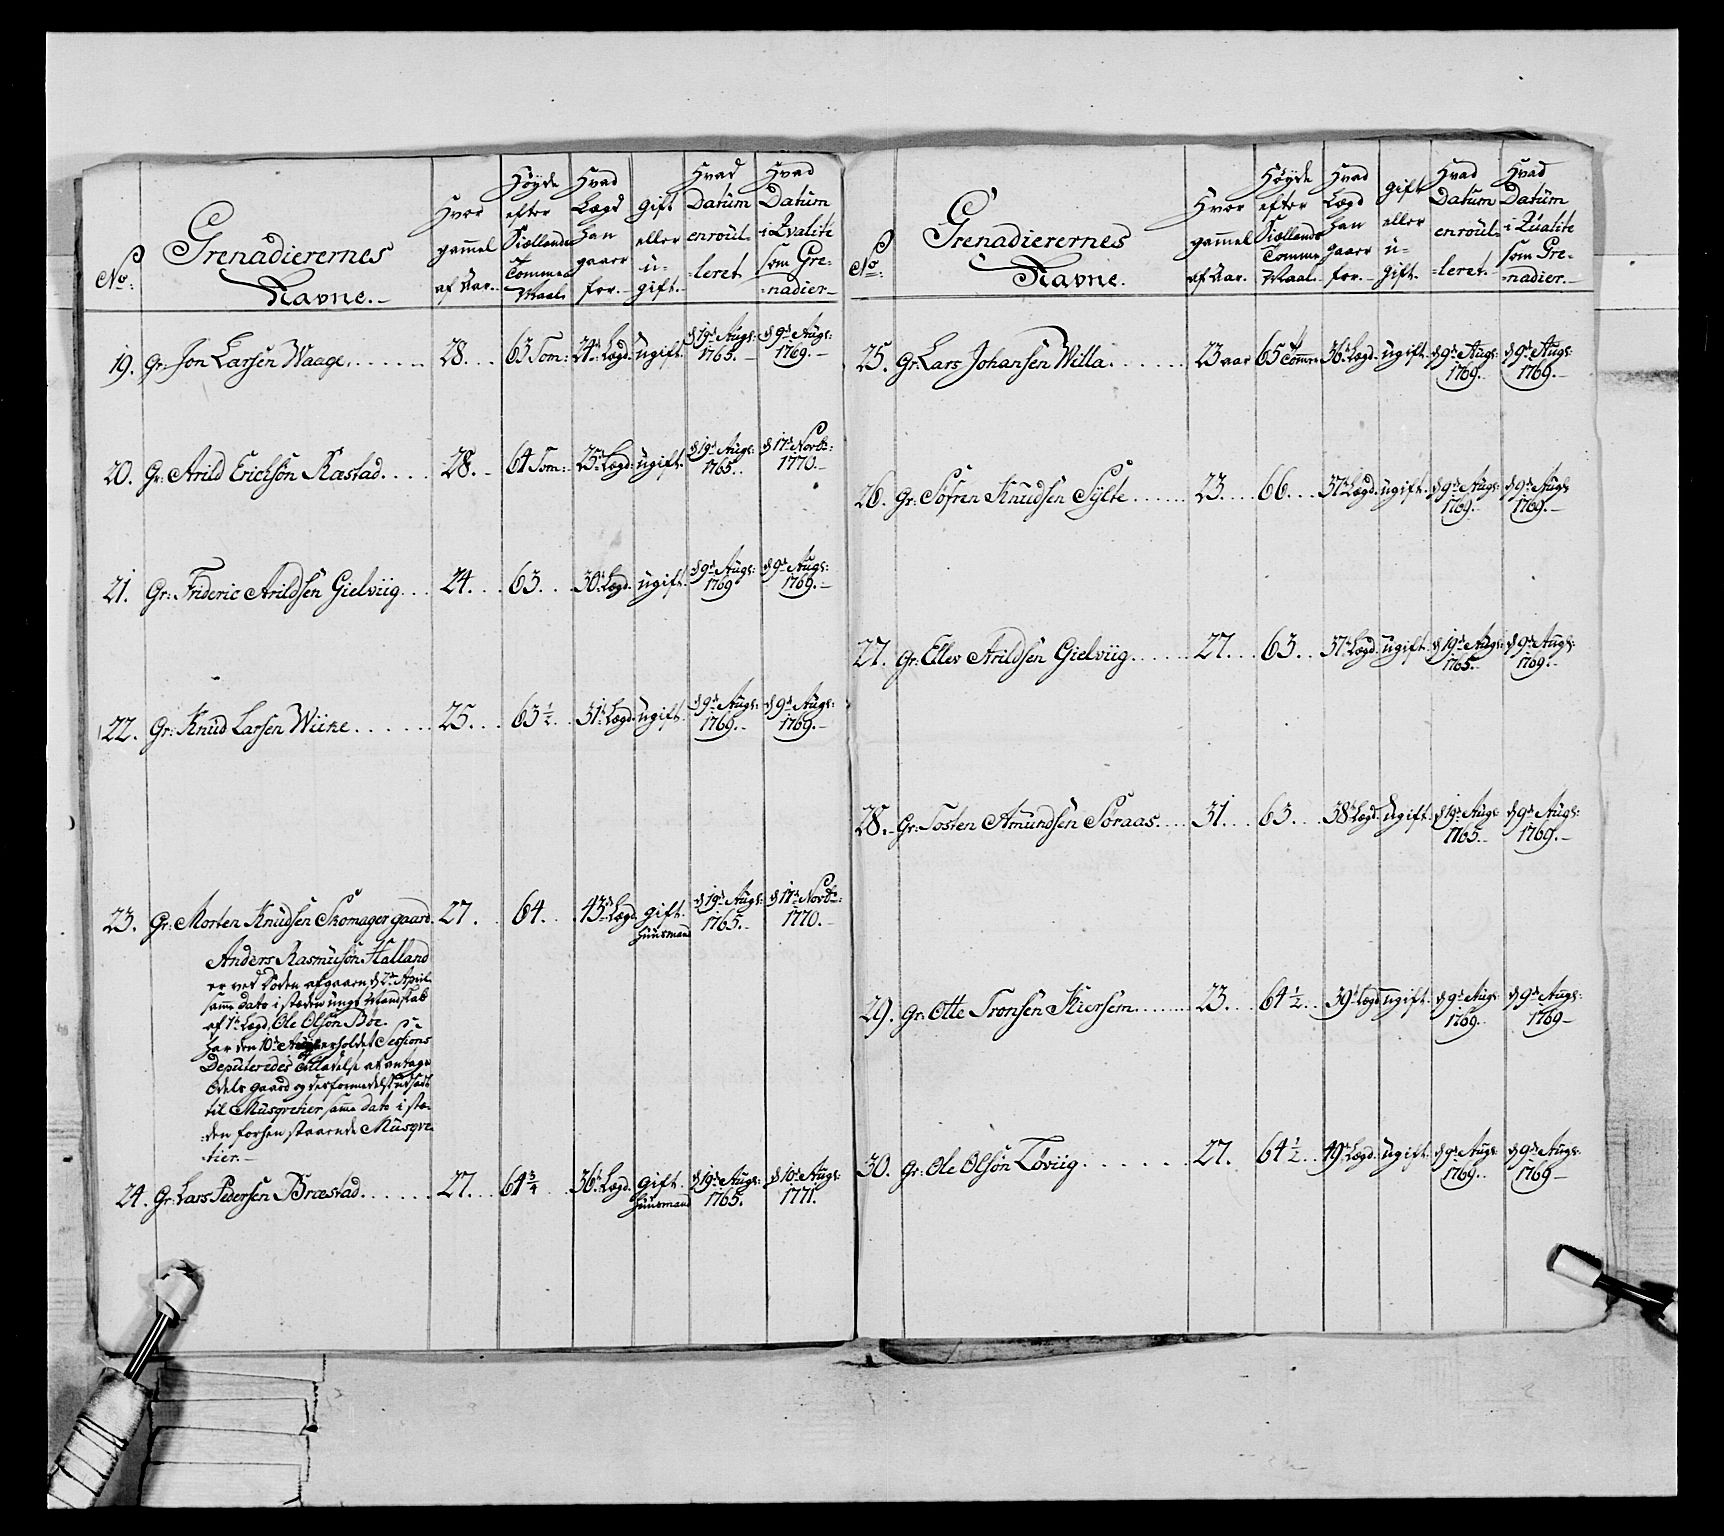 No:
Grenadierernes
Navne.
Hvor
gammel
af Aar.
Höyde
efter
Siællands
Tomme
Maal.
Hvad
Lægd
han
gaaer
for.
gift
eller
u-
gift.
Hvad
Datum
enroul-
leret
Hvad
Datum
i Qvalite
som Gre-
nadier.
19. Gr: Jon Larsen Waage. 28. 63 Tom: 24de Lægd. ugift. d 19de Augs: 1765. d 9de Augs: 1769.
20. Gr: Arild Erichsön Kastad. 28. 64 Tom: 25de Lægd. ugift. d 19de Augs: 1765. d 17de Novbr: 1770.
21. Gr: Frideric Arildsen Gielviig. 24. 63. 30de Lægd. ugift. d 9de Augs: 1769 d 9de Augs: 1769.
22. Gr: Knud Larsen Wiike. 25. 63 1/2. 31te Lægd. ugift. d 9de Augs: 1769. d 9de Augs: 1769.
23. Gr: Morten Knudsen Skomagergaard. 27. 64. 43de Lægd. gift. Huusmand d 19de Augs: 1765. d 17de Novbr: 1770.
Anders Rasmusön Halland
er ved Döden afgaaen d 2de April
samme dato i stæden ungt Mandskab
af 1te Lægd, Ole Olsön Böe.
har den 10de Aug erholdet Sessions
Deputeredes Tilladelse at antage
Odels gaard og desformedelst udsadt
til Musqvetier samme dato i stæ-
den forhen staaende Musqve-
tier.
24. Gr: Lars Pedersen Bræstad. 27. 64 3/4. 36te Lægd. gift. Huusmand d 19de Augs: 1765. d 10de Augs: 1771.
No:
Grenadierernes
Navne.
Hvor
gammel
af Aar.
Höyde
efter
Siællands
Tomme
Maal.
Hvad
Lægd
han
gaaer
for.
gift
eller
u-
gift.
Hvad
Datum
enroul-
leret.
Hvad
Datum
i Qualite
som Gre-
nadier.
25. Gr: Lars Johansen Willa. 23 aar 65 Tomme 36te Lægd. ugift. d 9de Augs: 1769. d 9de Augs: 1769.
26. Gr: Söfren Knudsen Sylte. 23. 66. 37te Lægd. ugift. d 9de Augs: 1769. d 9de Augs 1769.
27. Gr: Ellev Arildsen Gielviig. 27. 63. 37te Lægd. ugift. d 19de Augs: 1765. d 9de Augs: 1769.
28. Gr: Tosten Amundsen Söraas. 31. 63. 38te Lægd. ugift. d 19de Augs: 1765. d 9de Augs: 1769.
29. Gr: Otte Tronsen Kiersem. 23. 64 1/2. 39te Lægd. ugift. d 9de Augs: 1769. d 9de Augs: 1769
30. Gr: Ole Olsön Löviig. 27. 64 1/2. 49de Lægd. ugift. d 9de Augs: 1769. d 9de Augs: 1769